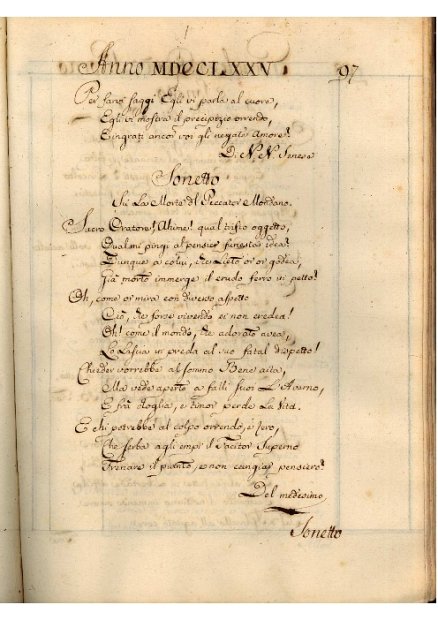 Anno MDCCLXXV 97
Per farvi saggi Egli vi parla al cuore,
Egli vi mostra il precipizio orrendo,
E ingrati ancor voi gli negate Amore!
Di N. N. Senese
Sonetto
Su La Morte del Peccator Mondano.
Sacro Oratore! Ahime! qual tristo oggetto,
Qual mi pingi al pensier funesta idea!
Dunque a colui, che lieto or or godea,
Già morte immerge il crudo ferro in petto!
Oh, come or mira con diverso aspetto
Ciò, che forse vivendo ei non credea!
Oh! come il mondo, che adorato avea,
Lo Lascia in preda al suo fatal dispetto!
Chieder vorrebbe al sommo Bene aita,
Ma vede aperto a falli suoi L'Averno,
E frà doglia, e timor perde La Vita.
E chi potrebbe al colpo orrendo, e fero,
Che serba agli empi il Superno
Frenare il pianto, e non cangiar pensiero?
Del medesimo
Sonetto